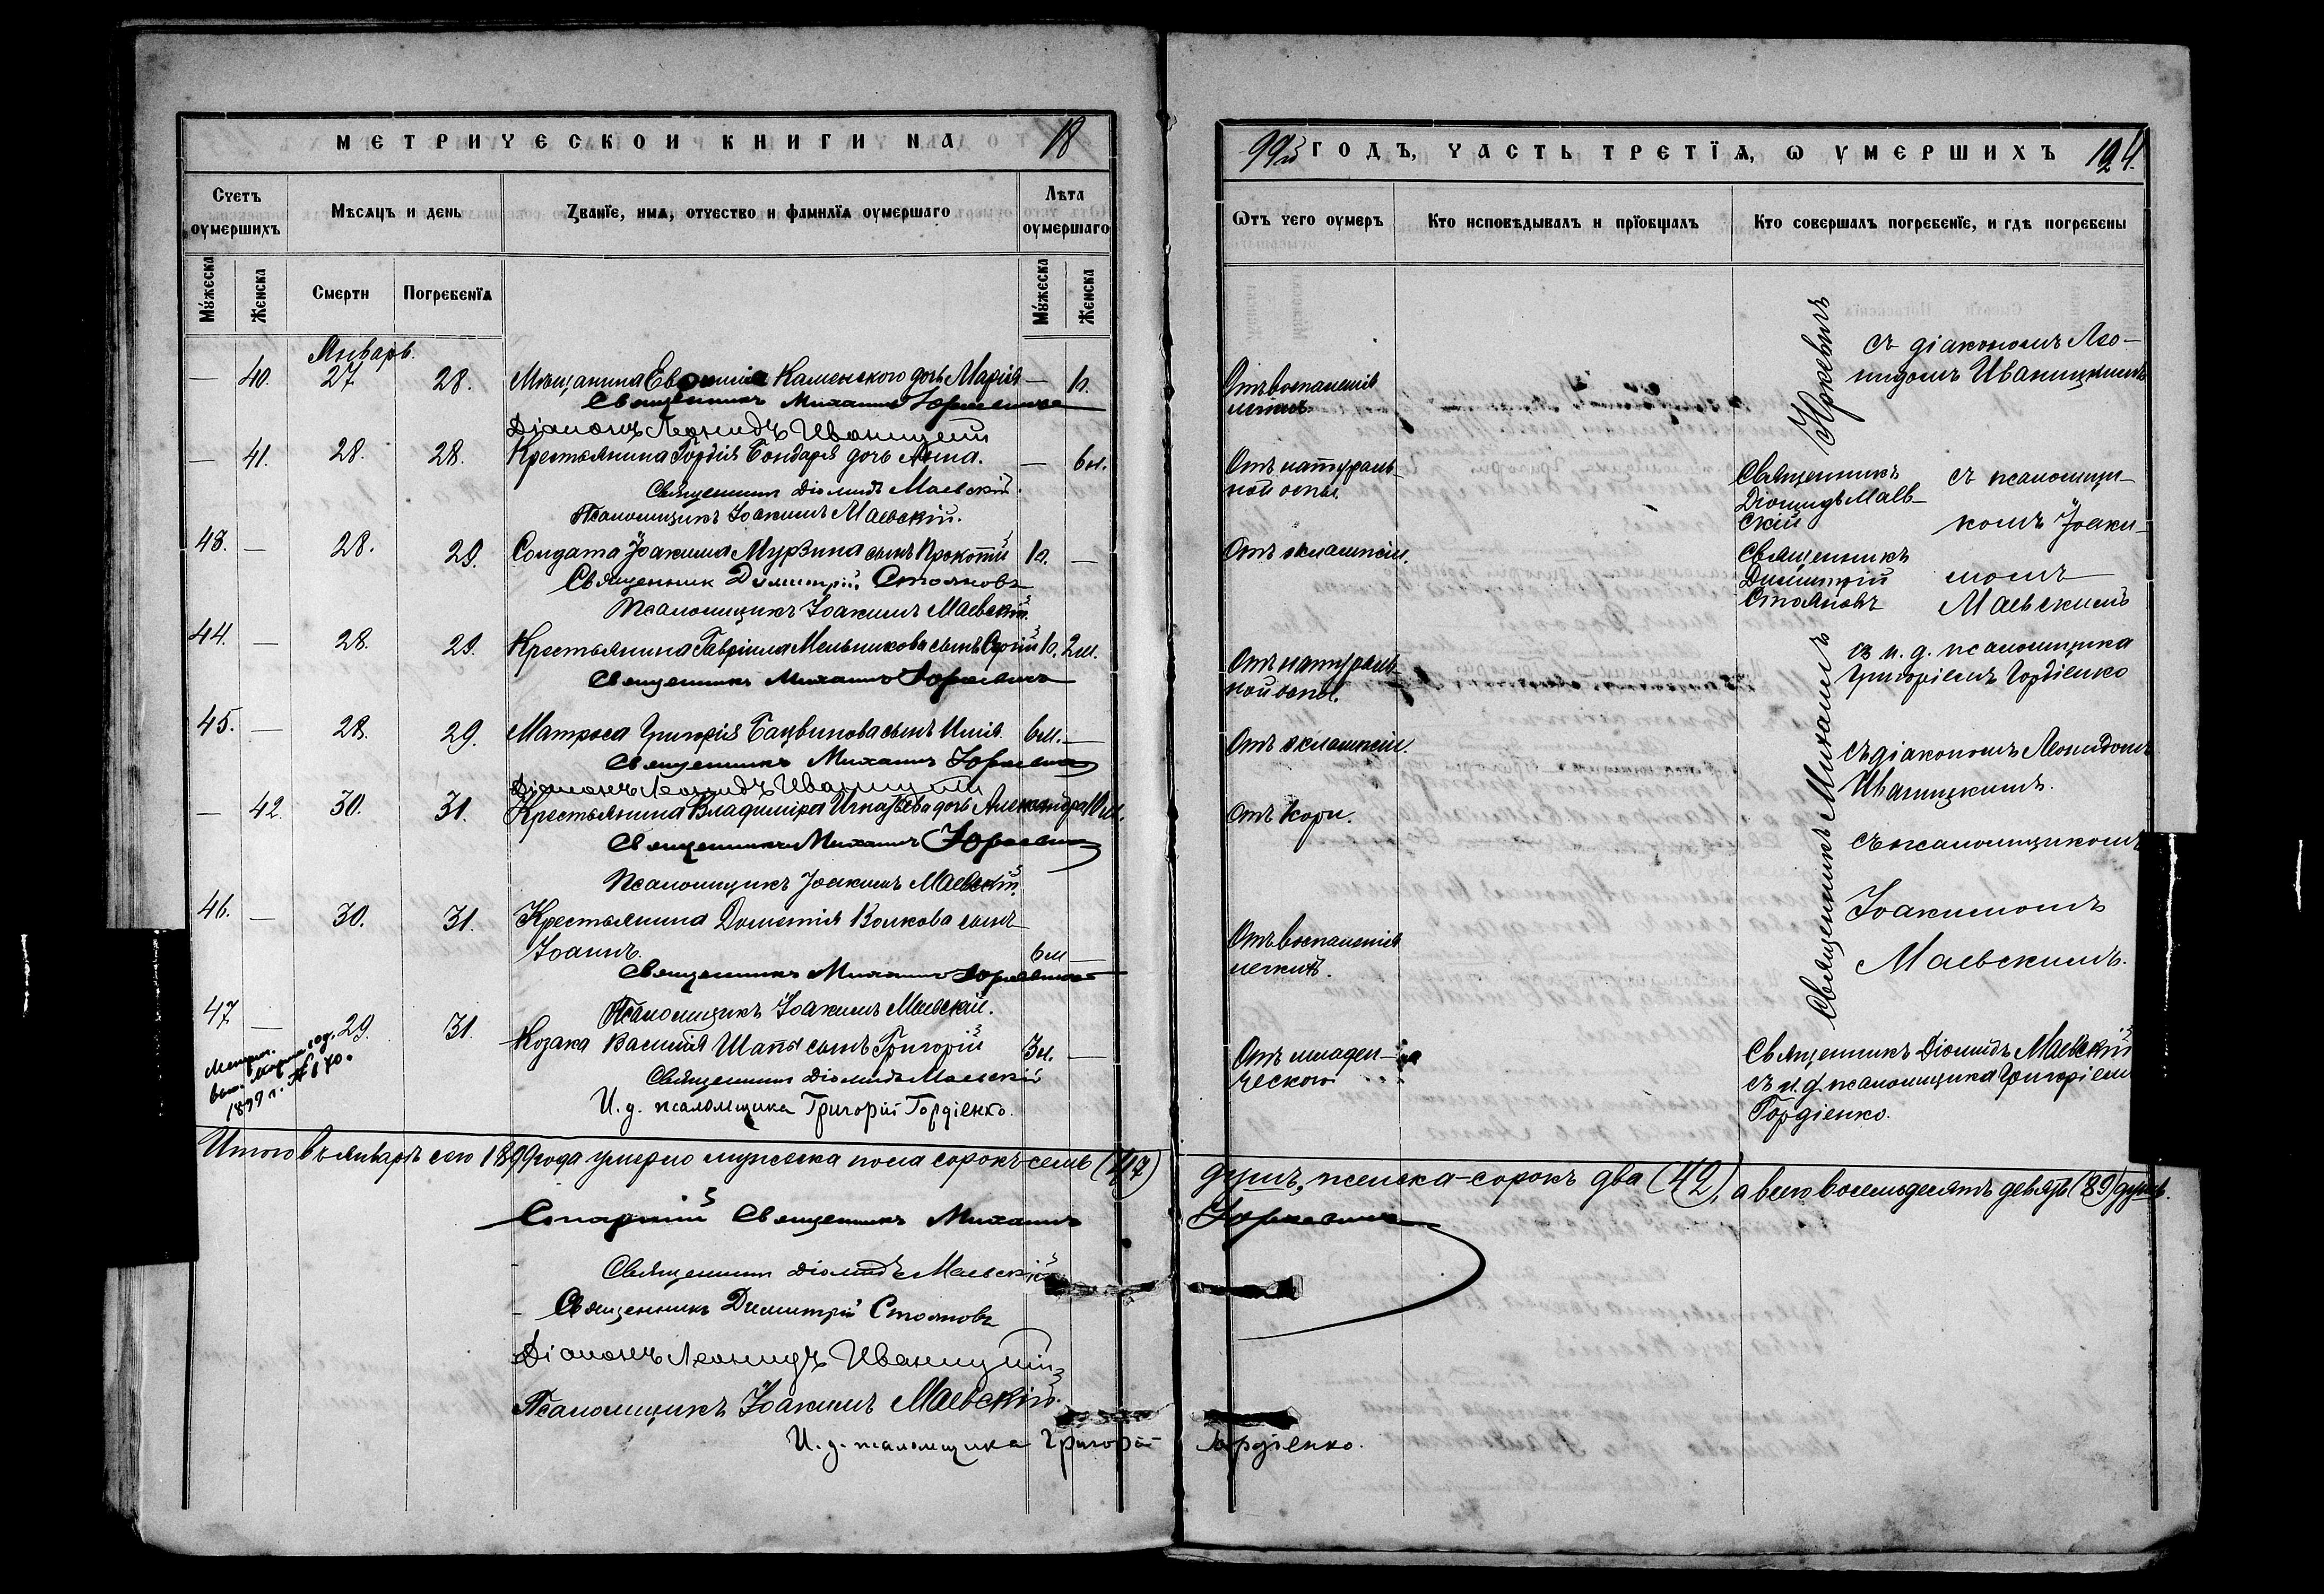 МЕТРИЧЕСКОЙ КНИГИ НА 18
Счетъ оумершихъ
Мѣсяцъ и день
Званїе, имя, отчество и фамилїя оумершаго
Лѣта оумершаго
Мужеска
Женска
Смерти
Погребенїя
Мужеска
Женска
Январь.
— 40. 27 28. Мѣщанина Евѳимія Каменского дочь Марія — 1г.
Священникъ Михаилъ Юркевичъ
Діаконъ Леонидъ Иваницкій
— 41. 28. 28. Крестьянина Гордія Бондаря дочь Анна. — 6м.
Священникъ Діомидъ Маевскій.
Псаломщикъ Іоакимъ Маевскій.
43. — 28. 29. Солдата Іоакима Мурзина сынъ Прокопій 1г. —
Священник Димитрій Стояновъ
Псаломщикъ Іоакимъ Маевскій.
44. — 28. 29. Крестьянина Гавріила Мельникова сынъ Сергій 1г. 2м.
Священникъ Михаилъ Юркевичъ
45. — 28. 29. Матроса Григорія Бацвинова сынъ Илія 6м. —
Священникъ Михаилъ Юркевичъ
Діаконъ Леонидъ Иваницкій
— 42. 30. 31. Крестьянина Владиміра Игнатьева дочь Александра
Священникъ Михаилъ Юркевичъ
Псаломщикъ Іоакимъ Маевскій.
46. — 30. 31. Крестьянина Дометія Волкова сынъ
Іоаннъ. 6м —
Священникъ Михаилъ Юркевичъ
Псаломщикъ Іоакимъ Маевскій.
47 — 29. 31. Козака Василія Шапы сынъ Григорій 3м. —
1899 г. № 170.
Священникъ Діомидъ Маевскій
И. д. псаломщика Григорій Гордіенко.
Итого въ январѣ сего 1899 года умерло мужеска пола сорокъ семь (47)
Старшій Священникъ Михаилъ
Священникъ Діомидъ Маевскій
Священникъ Димитрій Стояновъ
Діаконъ Леонидъ Иваницкій
Псаломщикъ Іоакимъ Маевскій.
И. д. псаломщика Григорій
99й ГОДЪ, ЧАСТЬ ТРЕТЇЯ, Ѡ УМЕРШИХЪ 194.
Ѿтъ чего оумеръ
Кто исповѣдывалъ и прїобщалъ
Кто совершалъ погребенїе, и гдѣ погребены
Отъ воспаленія
легкихъ.
Юркевичъ
съ діакономъ Лео-
нидомъ Иваницкимъ
Отъ натураль-
ной оспы.
Священникъ
Діомидъ Маев-
скій
съ псаломщи-
комъ Іоаки-
Отъ эклампсіи.
Священникъ
Димитрій
Стояновъ
момъ
Маевскимъ
Отъ натураль-
ной оспы.
Священникъ Михаилъ
съ и. д. псаломщика
Григоріемъ Гордіенко
Отъ эклампсіи.
съ діакономъ Леонидомъ
Иваницкимъ.
Отъ кори.
съ псаломщикомъ
Іоакимомъ
Маевскимъ.
Отъ воспаленія
легкихъ.
Отъ младен-
ческого
Священникъ Діомидъ Маевскій
съ и. д. псаломщика Григоріемъ
Гордіенко.
душъ, женска-сорокъ два (42), а всего восемьдесятъ девять (89) душъ.
Юркевичъ
Гордіенко.